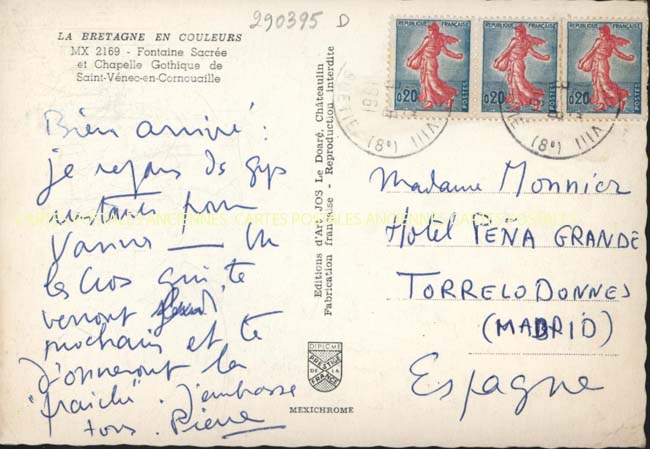 290395 D
LA BRETAGNE EN COULEURS
MX 2169 - Fontaine Sacrée
et Chapelle Gothique de
Saint-Vénec-en-Cornouaille
Bien arrivé :
je repars ds qqs
pour
Vannes — Vu
les Cros qui te
verront
prochain et te
donneront la
"fraîche". J'embrasse
tous. Pierre
Editions d'Art JOS Le Doaré, Châteaulin
Fabrication française - Reproduction interdite
DIPLOME
PRESTIGE
DE LA
FRANCE
MEXICHROME
0,20 POSTES
0,20 POSTES
0,20 POSTES
(8e) VIII
(8e) VIII
Madame Monnier
Hôtel PEÑA GRANDE
TORRELODONNES
(MADRID)
Espagne
CARTES POSTALES ANCIENNES